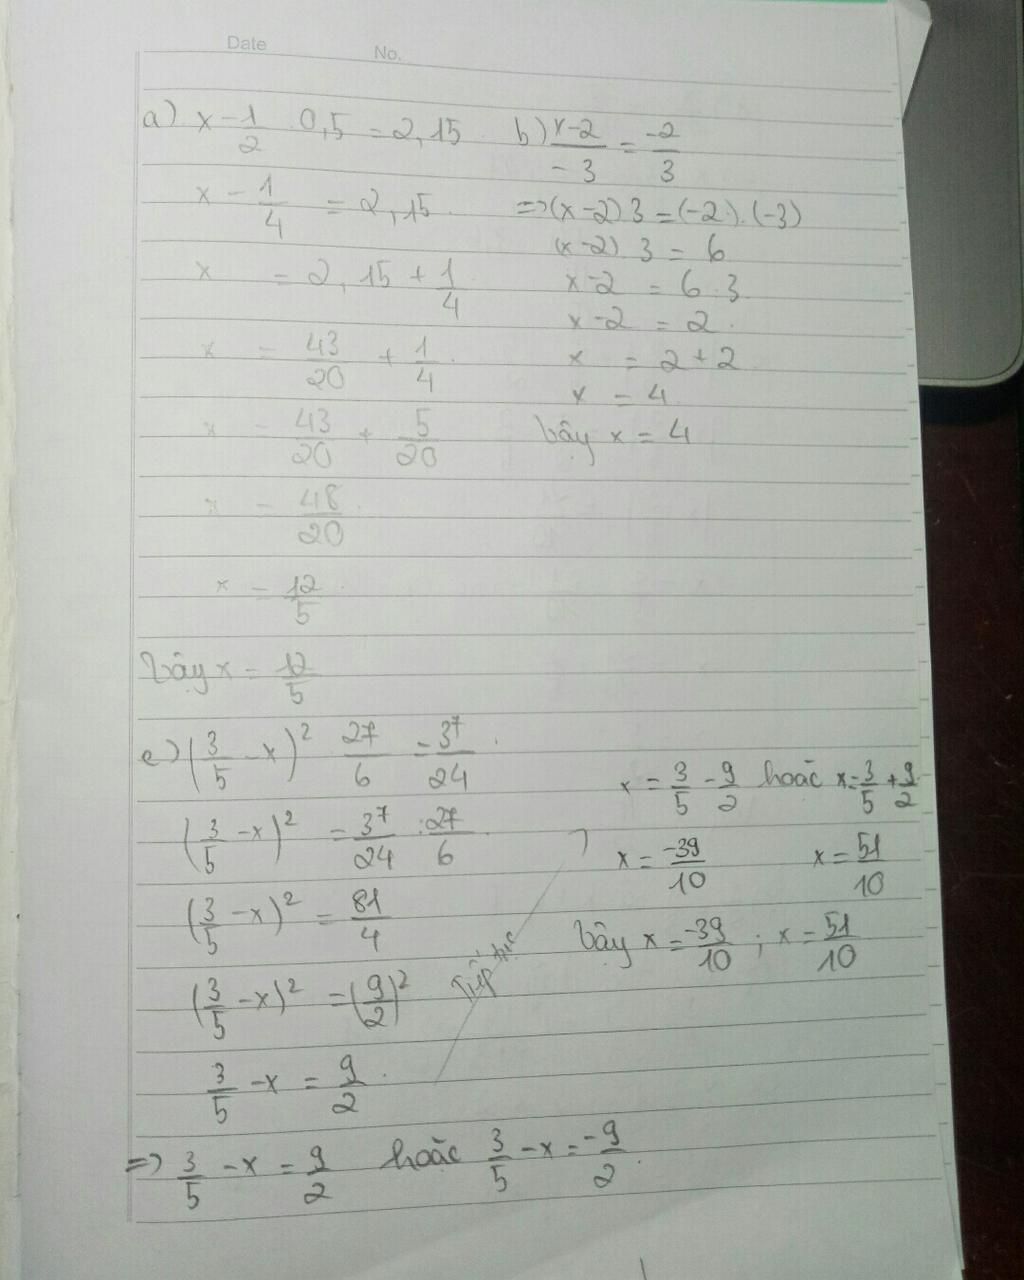 Date No.
a) x - 1/2 . 0,5 = 2,15
x - 1/4 = 2,15
x = 2,15 + 1/4
x = 43/20 + 1/4
x = 43/20 + 5/20
x = 48/20
x = 12/5
Vậy x = 12/5
b) x-2/-3 = -2/3
=> (x-2) 3 = (-2).(-3)
(x-2) 3 = 6
x-2 = 6 : 3
x-2 = 2
x = 2+2
x = 4
Vậy x = 4
c) (3/5 - x)² 27/6 = 3⁷/24
(3/5 - x)² = 3⁷/24 : 27/6
(3/5 - x)² = 81/4
(3/5 - x)² = (9/2)²
3/5 - x = 9/2
=> 3/5 - x = 9/2 hoặc 3/5 - x = -9/2
Tiếp tục
x = 3/5 - 9/2 hoặc x = 3/5 + 9/2
x = -39/10 x = 51/10
Vậy x = -39/10 ; x = 51/10